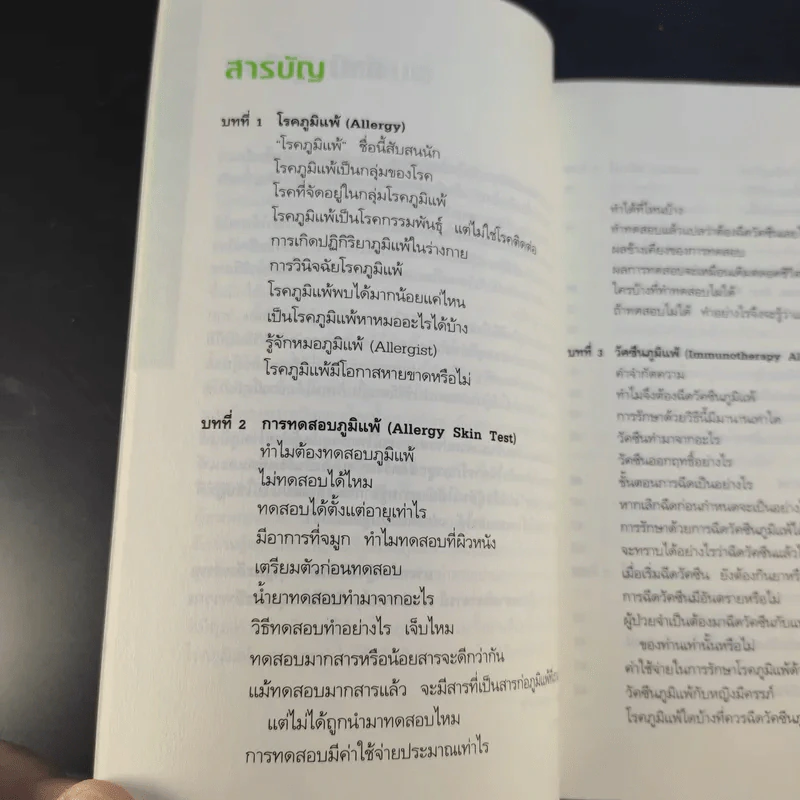 สารบัญ
บทที่ 1 โรคภูมิแพ้ (Allergy)
"โรคภูมิแพ้" ชื่อนี้สับสนนัก
โรคภูมิแพ้เป็นกลุ่มของโรค
โรคที่จัดอยู่ในกลุ่มโรคภูมิแพ้
โรคภูมิแพ้เป็นโรคกรรมพันธุ์ แต่ไม่ใช่โรคติดต่อ
การเกิดปฏิกิริยาภูมิแพ้ในร่างกาย
การวินิจฉัยโรคภูมิแพ้
โรคภูมิแพ้พบได้มากน้อยแค่ไหน
เป็นโรคภูมิแพ้หาหมออะไรได้บ้าง
รู้จักหมอภูมิแพ้ (Allergist)
โรคภูมิแพ้มีโอกาสหายขาดหรือไม่
บทที่ 2 การทดสอบภูมิแพ้ (Allergy Skin Test)
ทำไมต้องทดสอบภูมิแพ้
ไม่ทดสอบได้ไหม
ทดสอบได้ตั้งแต่อายุเท่าไร
มีอาการที่จมูก ทำไมทดสอบที่ผิวหนัง
เตรียมตัวก่อนทดสอบ
น้ำยาทดสอบทำมาจากอะไร
วิธีทดสอบทำอย่างไร เจ็บไหม
ทดสอบมากสารหรือน้อยสารจะดีกว่ากัน
แม้ทดสอบมากสารแล้ว จะมีสารที่เป็นสารก่อภูมิแพ้
แต่ไม่ได้ถูกนำมาทดสอบไหม
การทดสอบมีค่าใช้จ่ายประมาณเท่าไร
ทำได้ที่ไหนบ้าง
ทำทดสอบแล้วแปลว่าต้องฉีดวัคซีน
ผลข้างเคียงของการทดสอบ
ผลการทดสอบจะเหมือนเดิมตลอด
ใครบ้างที่ทำทดสอบไม่ได้
ถ้าทดสอบไม่ได้ ทำอย่างไรจึงจะรู้
บทที่ 3 วัคซีนภูมิแพ้ (Immunotherapy
คำจำกัดความ
ทำไมจึงต้องฉีดวัคซีนภูมิแพ้
การรักษาด้วยวิธีนี้มีมานานเท่าใด
วัคซีนทำมาจากอะไร
วัคซีนออกฤทธิ์อย่างไร
ขั้นตอนการฉีดเป็นอย่างไร
หากเลิกฉีดก่อนกำหนดจะเป็นอย่างไ
การรักษาด้วยการฉีดวัคซีนภูมิแพ้
จะทราบได้อย่างไรว่าฉีดวัคซีนแล้ว
เมื่อเริ่มฉีดวัคซีน ยังต้องกินยาหรื
การฉีดวัคซีนมีอันตรายหรือไม่
ผู้ป่วยจำเป็นต้องมาฉีดวัคซีนกับ
ของท่านเท่านั้นหรือไม่
ค่าใช้จ่ายในการรักษาโรคภูมิแพ้
วัคซีนภูมิแพ้กับหญิงมีครรภ์
โรคภูมิแพ้ใดบ้างที่ควรฉีดวัคซีน